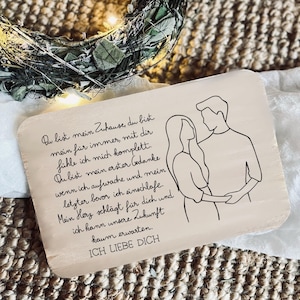 Du bist mein Zuhause, du bist
mein für immer mit dir
fühle ich mich komplett.
Du bist mein erster Gedanke
wenn ich aufwache und mein
letzter bevor ich einschlafe.
Mein Herz schlägt für dich und
ich kann unsere Zukunft
kaum erwarten.
ICH LIEBE DICH